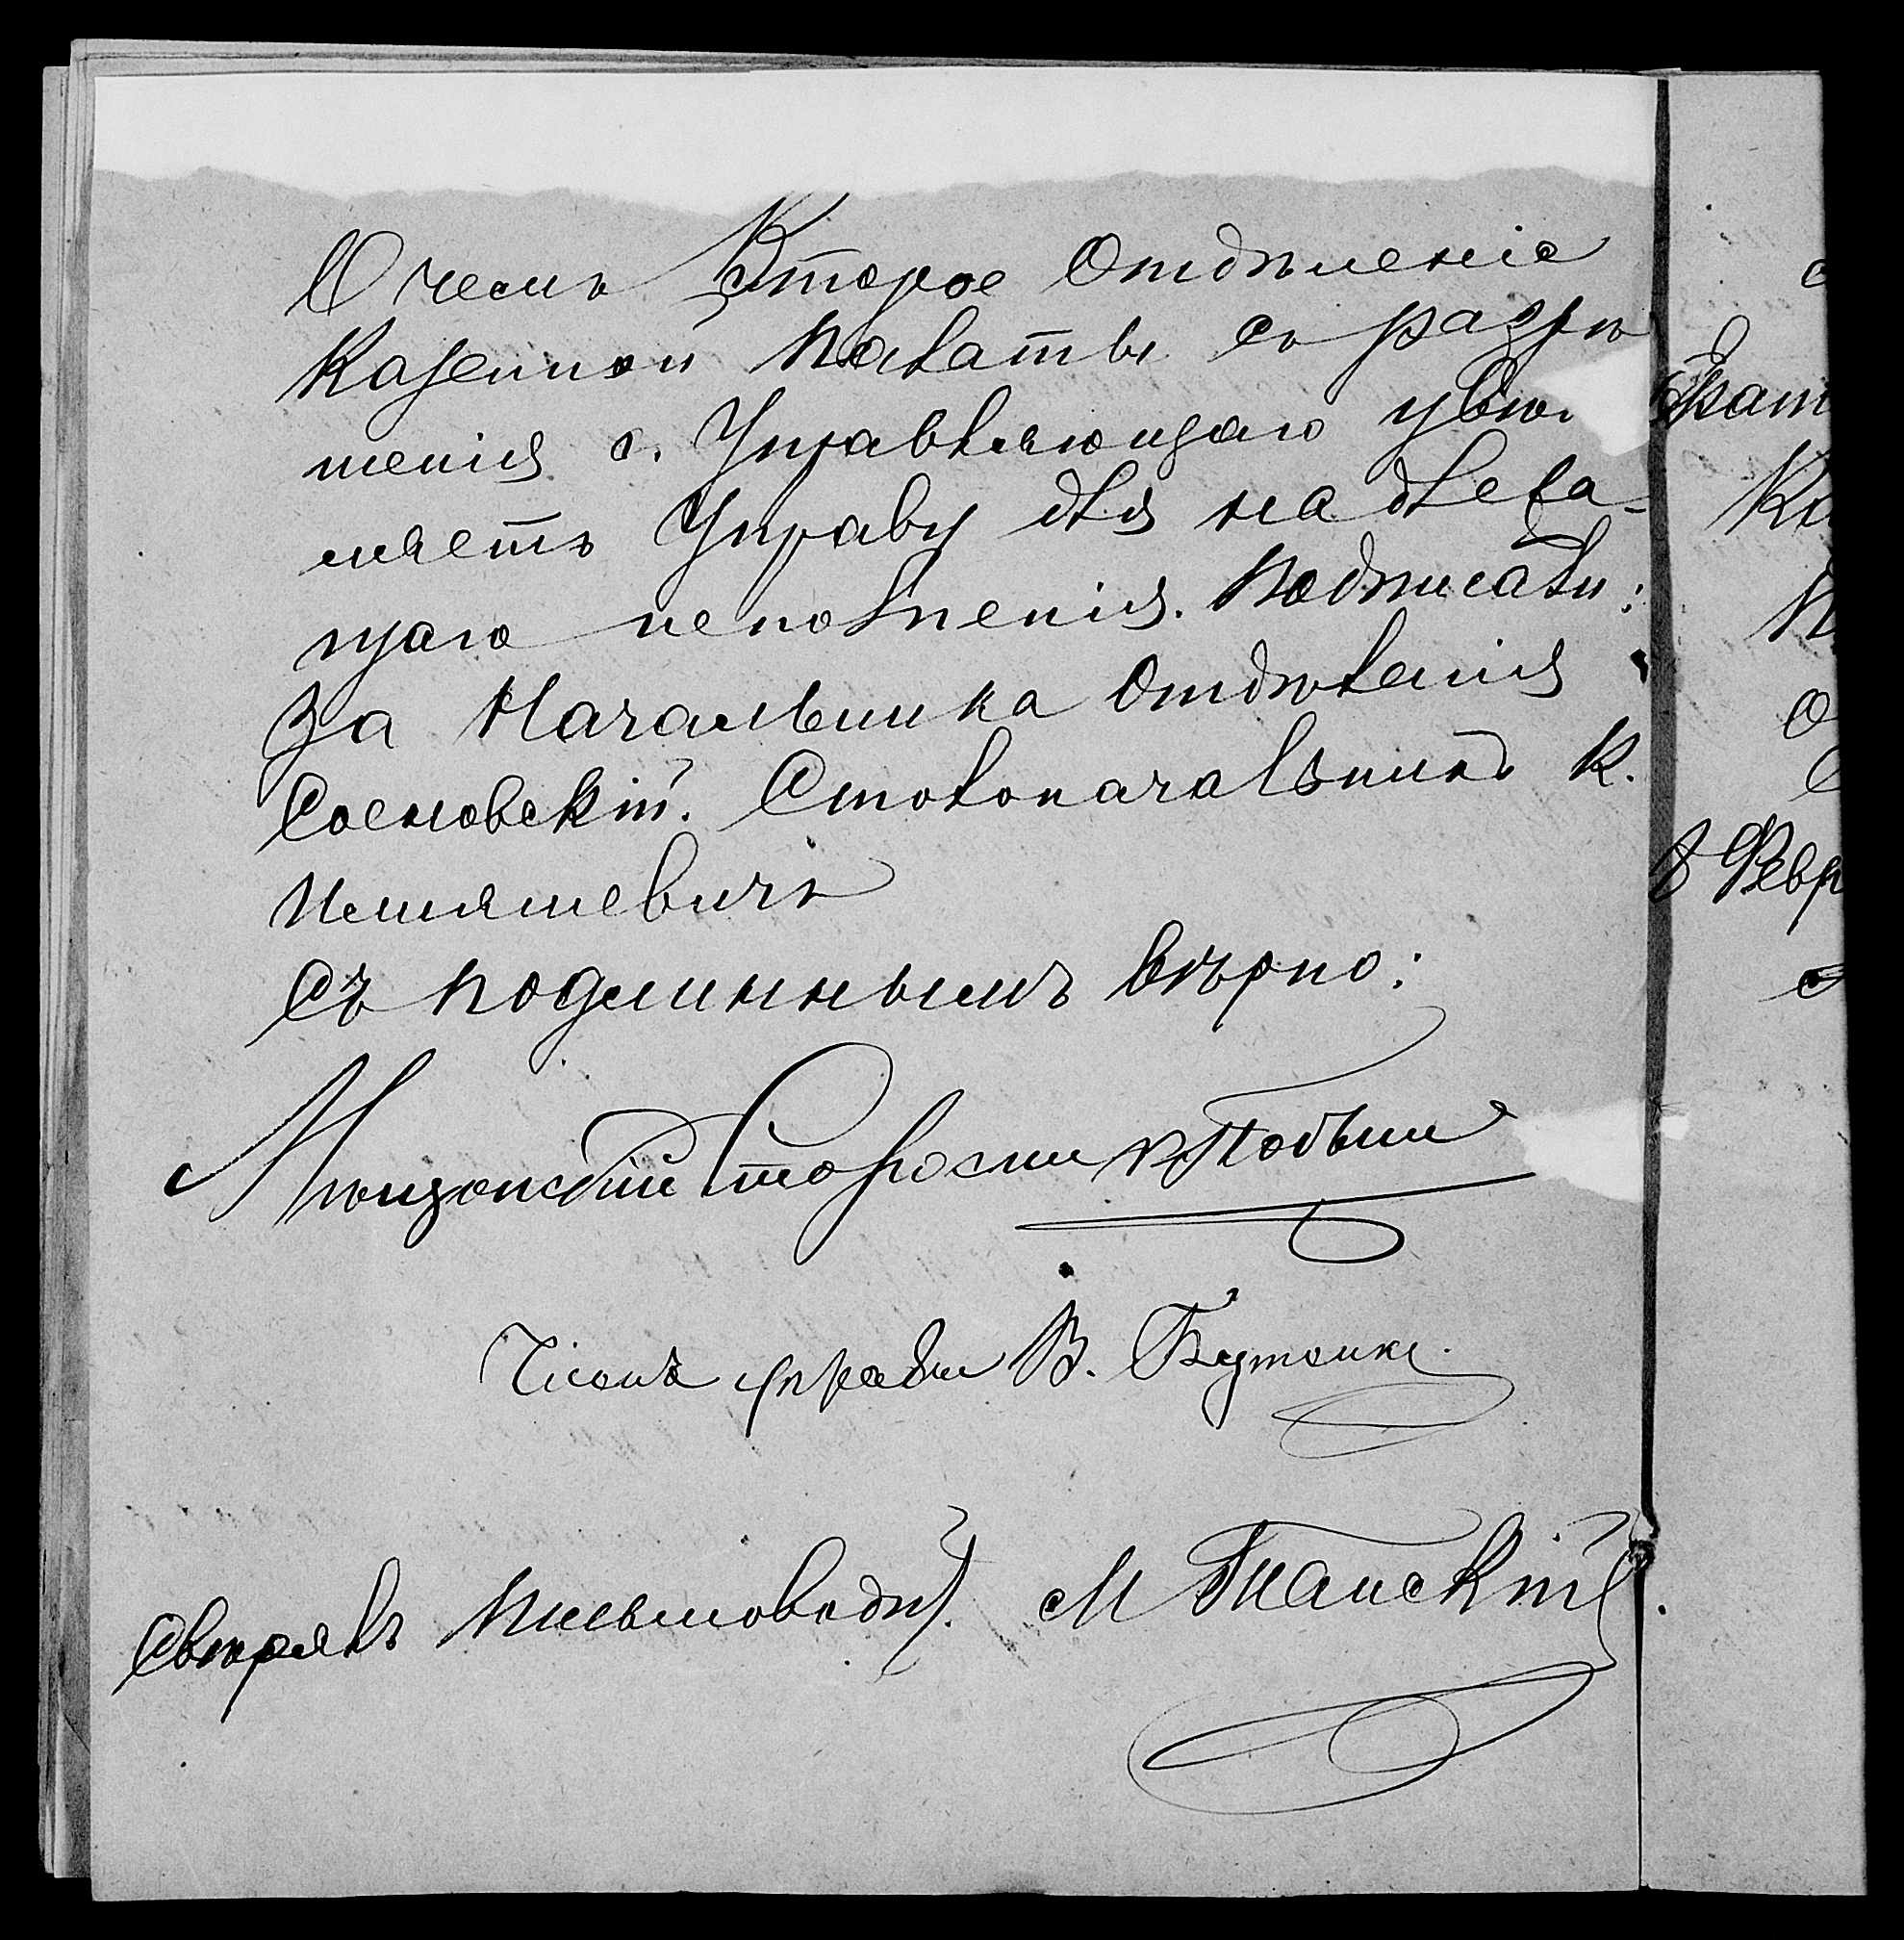 О чемъ Второе Отдѣленіе
Казенной Палаты съ разрѣ
шенія г. Управляющаго увѣдо
мляетъ Управу для надлежа-
щаго исполненія. Подписали:
За Начальника Отдѣленія
Сосновскій. Столоначальникъ К.
Игнатевичъ
Съ подлиннымъ вѣрно:
Мѣщанскій Староста
Членъ управы В.
Свѣрялъ Письмоводит. М
Февр